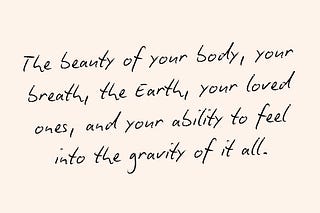 The beauty of your body, your
breath, the Earth, your loved
ones, and your ability to feel
into the gravity of it all.